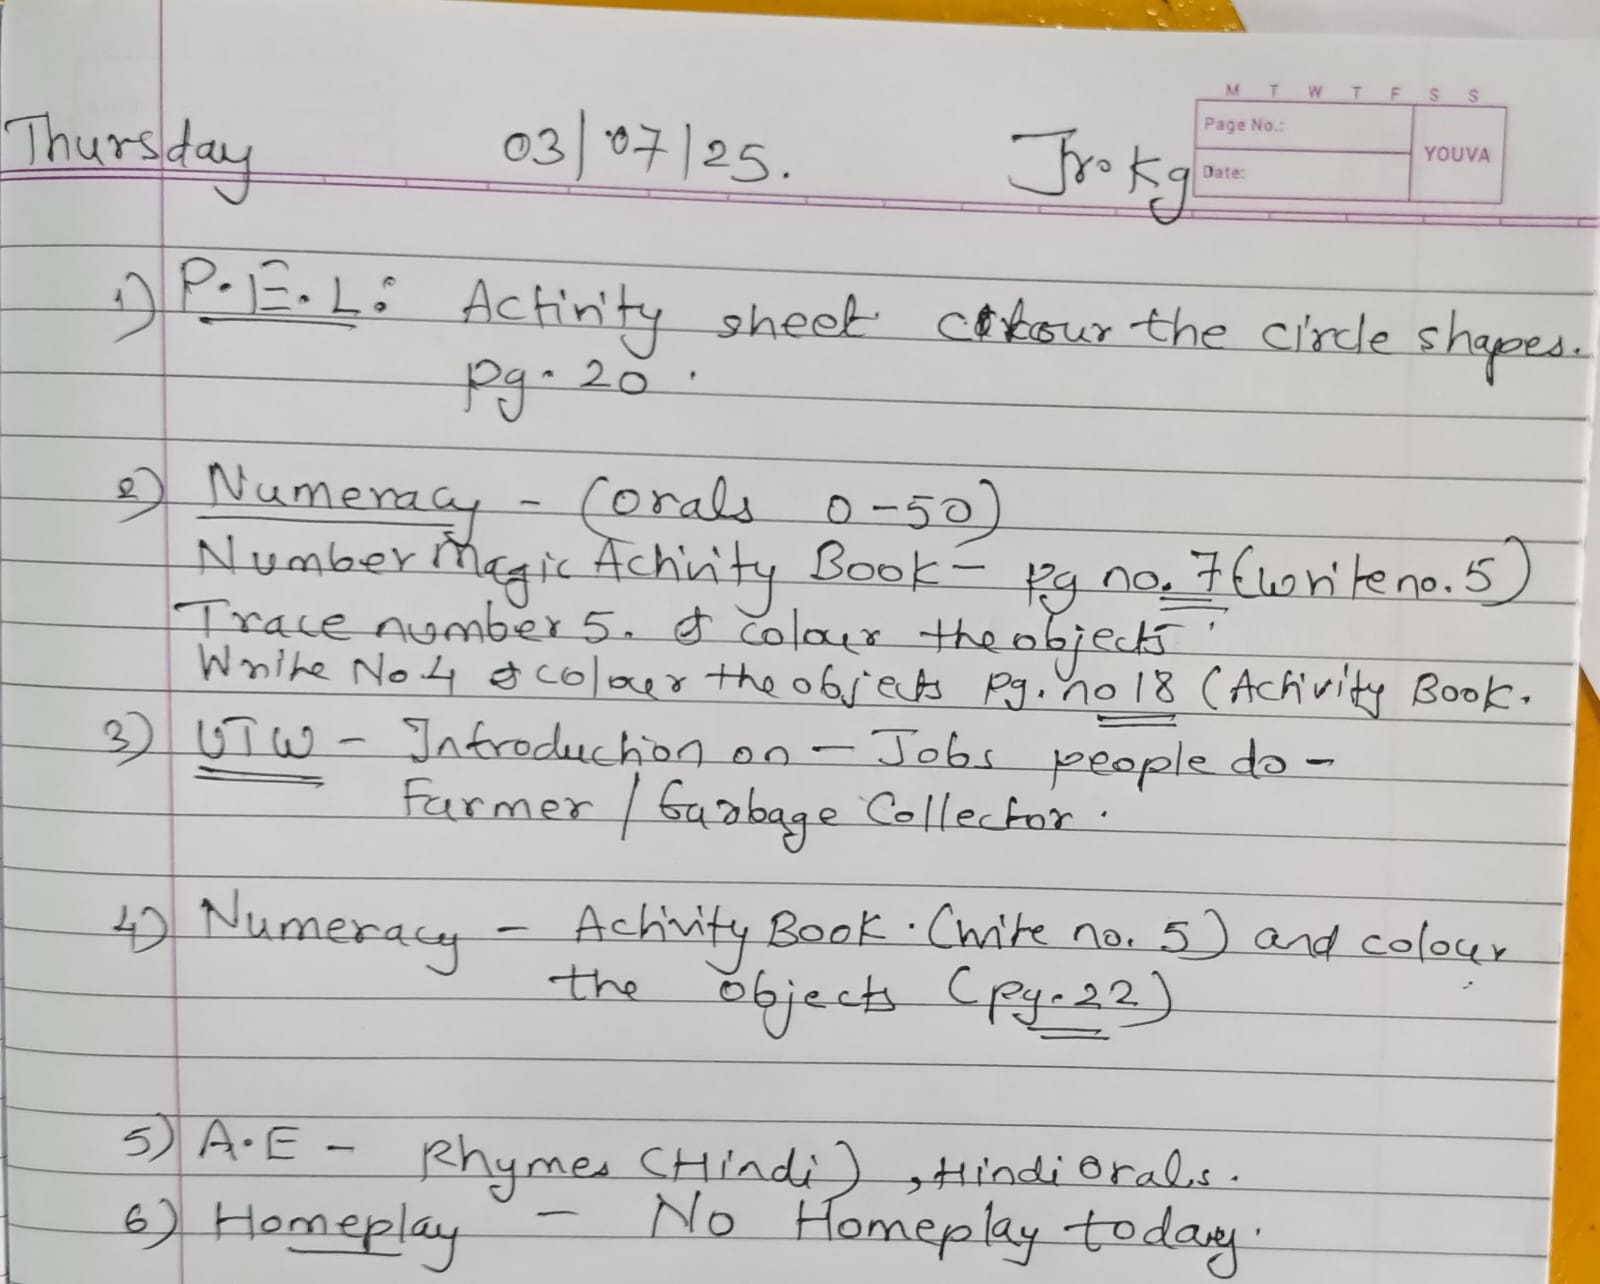 M T W T F S S
Page No.:
YOUVA
Date:
Thursday 03/07/25. Jr. Kg
1) P.E.L: Activity sheet colour the circle shapes.
pg. 20.
2) Numeracy - (orals 0-50)
Number Magic Activity Book - pg no. 7 (write no. 5)
Trace number 5. & colour the objects.
Write No. 4 & colour the objects pg. no 18 (Activity Book.
3) UTW - Introduction on - Jobs people do -
Farmer / Garbage Collector.
4) Numeracy - Activity Book. (write no. 5) and colour
the objects (pg. 22)
5) A.E - Rhymes (Hindi), Hindi orals.
6) Homeplay - No Homeplay today.